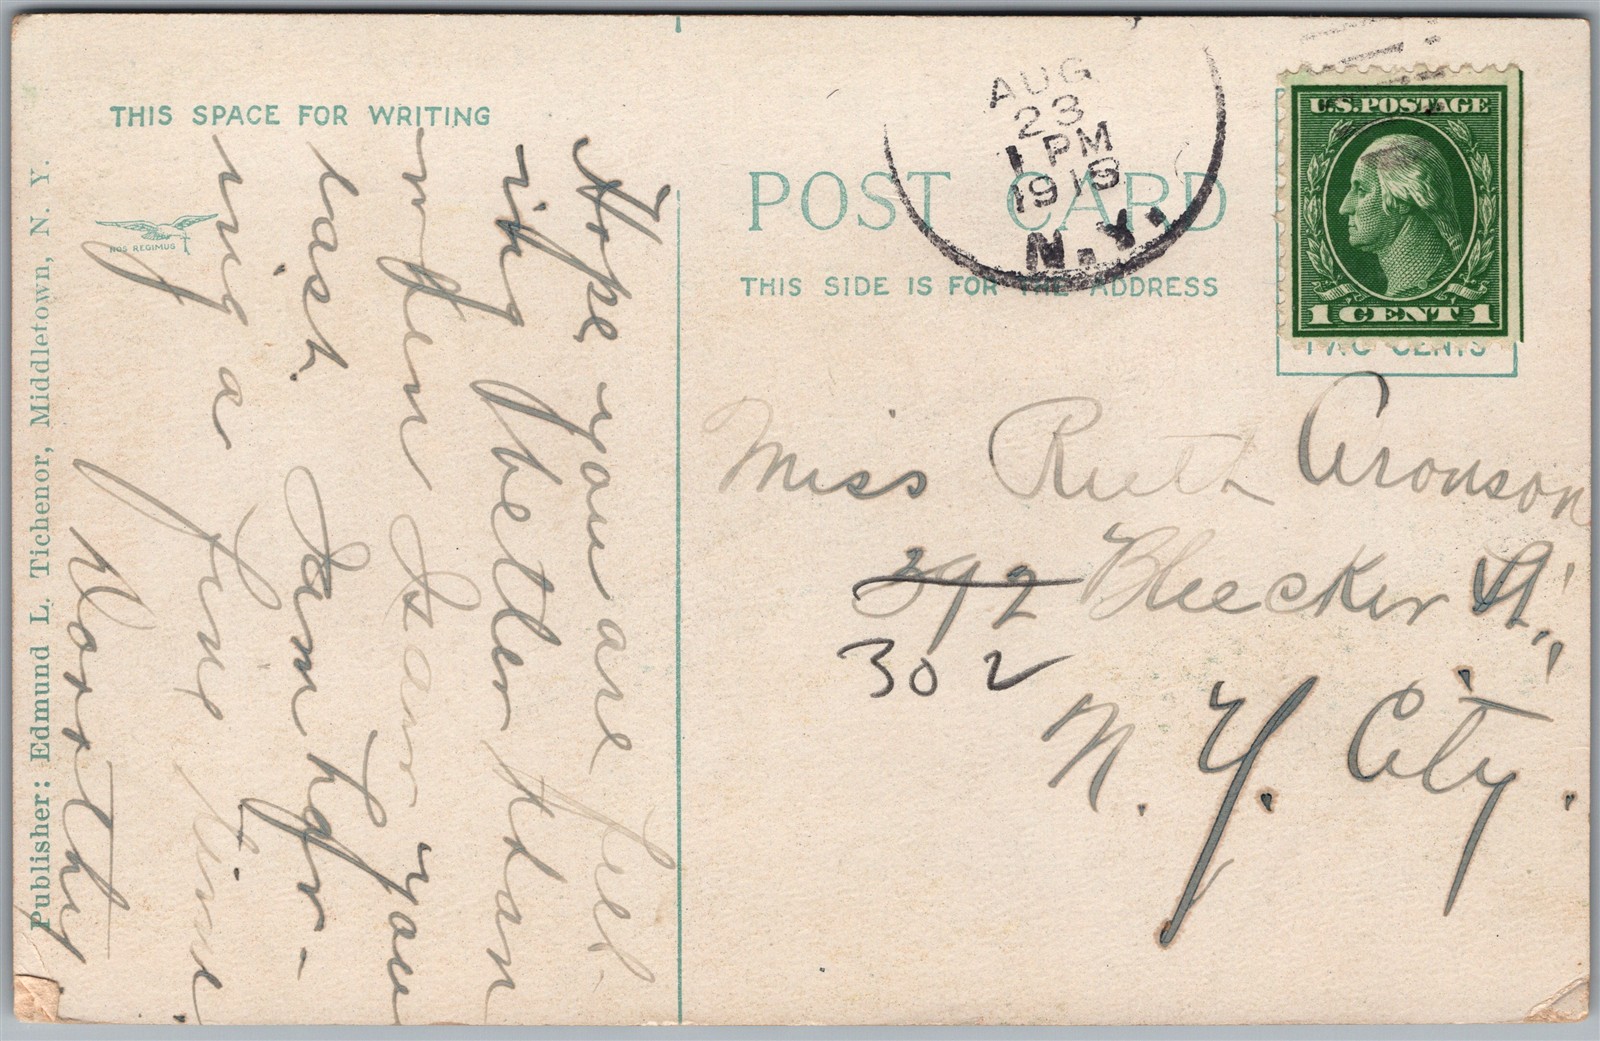 THIS SPACE FOR WRITING
Hope you are feel-
ing better than
when I saw you
last. I am hav-
ing a fine time
Dorothy
NOS REGIMUS
Publisher: Edmund L. Tichenor, Middletown, N. Y.
AUG
23
1 PM
N.Y.
POST CARD
THIS SIDE IS FOR THE ADDRESS
U.S. POSTAGE
1 CENT 1
CENTS
Miss Ruth Aronson
392 Bleecker St.,
302
N. Y. City.